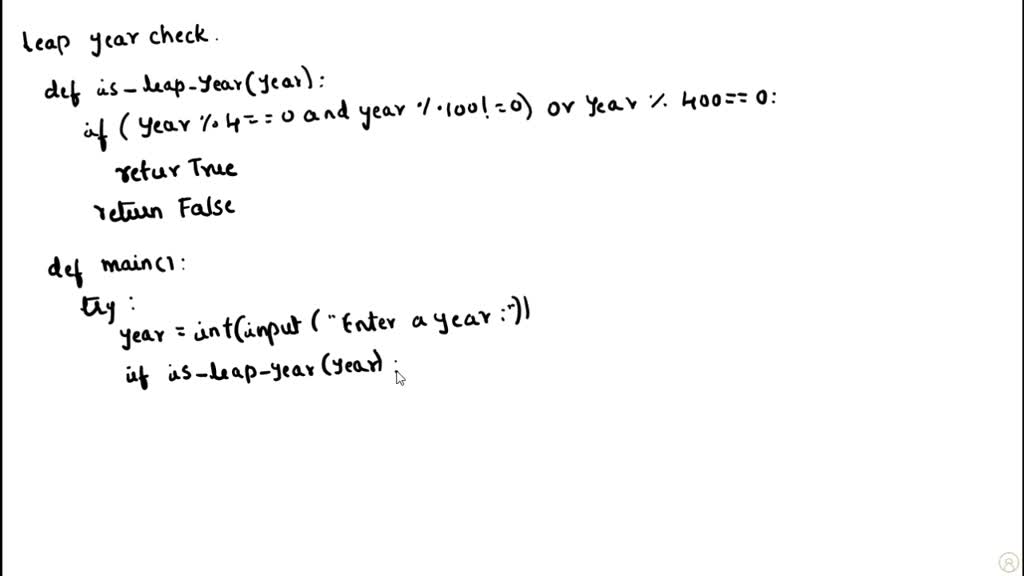 leap year check.
def is-leap-year(year):
if (year % 4 == 0 and year % 100 != 0) or year % 400 == 0:
retur True
return False
def main():
try:
year = int(input("Enter a year:"))
if is-leap-year(year):